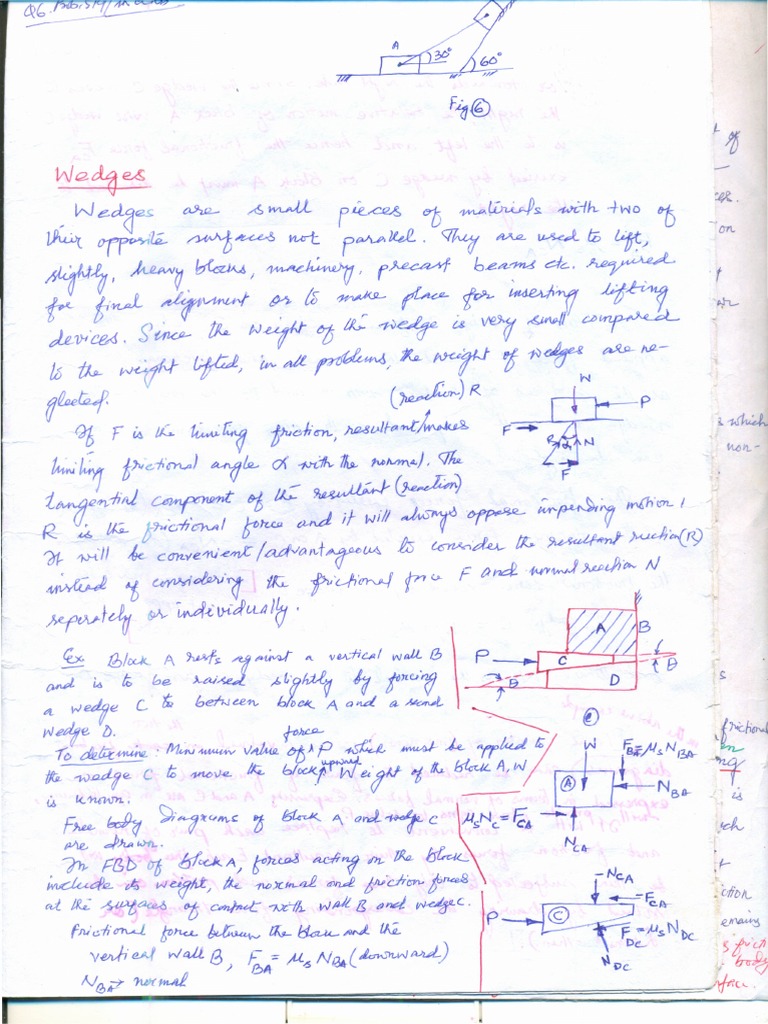 Q6.
A
30°
60°
Fig. 6
Wedges
Wedges are small pieces of materials with two of
their opposite surfaces not parallel. They are used to lift,
slightly, heavy blocks, machinery, precast beams etc. required
for final alignment or to make place for inserting lifting
devices. Since the weight of the wedge is very small compared
to the weight lifted, in all problems, the weight of wedges are ne-
glected.
(reaction) R
If F is the limiting friction, resultant makes
limiting frictional angle α with the normal. The
tangential component of the resultant (reaction)
R is the frictional force and it will always oppose impending motion,
It will be convenient/advantageous to consider the resultant reaction (R)
instead of considering the frictional force F and normal reaction N
seperately or individually.
W
P
F
R
α
N
F
Ex. Block A rests against a vertical wall B
and is to be raised slightly by forcing
a wedge C to between block A and a
wedge D.
force
To determine: Minimum value of P which must be applied to
the wedge C to move the block upward Weight of the block A, W
is known.
Free body diagrams of block A and wedge C
are drawn.
In FBD of block A, forces acting on the block
include its weight, the normal and friction forces
at the surfaces of contact with wall B and wedge C.
Frictional force between the block and the
vertical wall B, F_BA = μs N_BA (downward)
N_BA → normal
A
B
P
C
θ
D
θ
W
F_BA = μs N_BA
A
N_BA
μs N_C = F_CA
N_CA
N_CA
F_CA
P
C
F_DC = μs N_DC
N_DC
of
on
which
non-
frictional
is